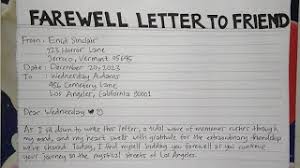 FAREWELL LETTER TO FRIEND
From: Enid Sinclair
123 Horror Lane
Serroco, Vermont 05695
Date: December 20, 2023
To: Wednesday Addams
456 Cemetery Lane
Los Angeles, California 90001
Dear Wednesday
As I sit down to write this letter, a tidal wave of memories rushes through
my mind, and my heart swells with gratitude for the extraordinary friendship
we've shared. Today, I find myself bidding you farewell as you continue
your journey to the mystical streets of Los Angeles.